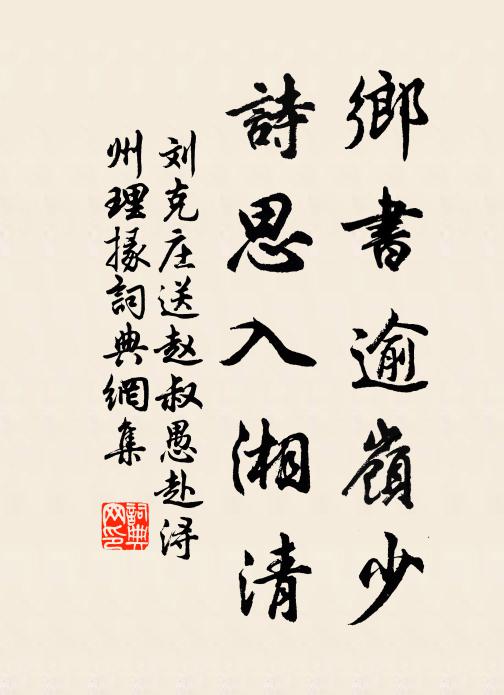 鄉書逾嶺少
詩思入湘清
刘克庄送赵叔愚赴浔
州理掾詞典網集
詞典
网印